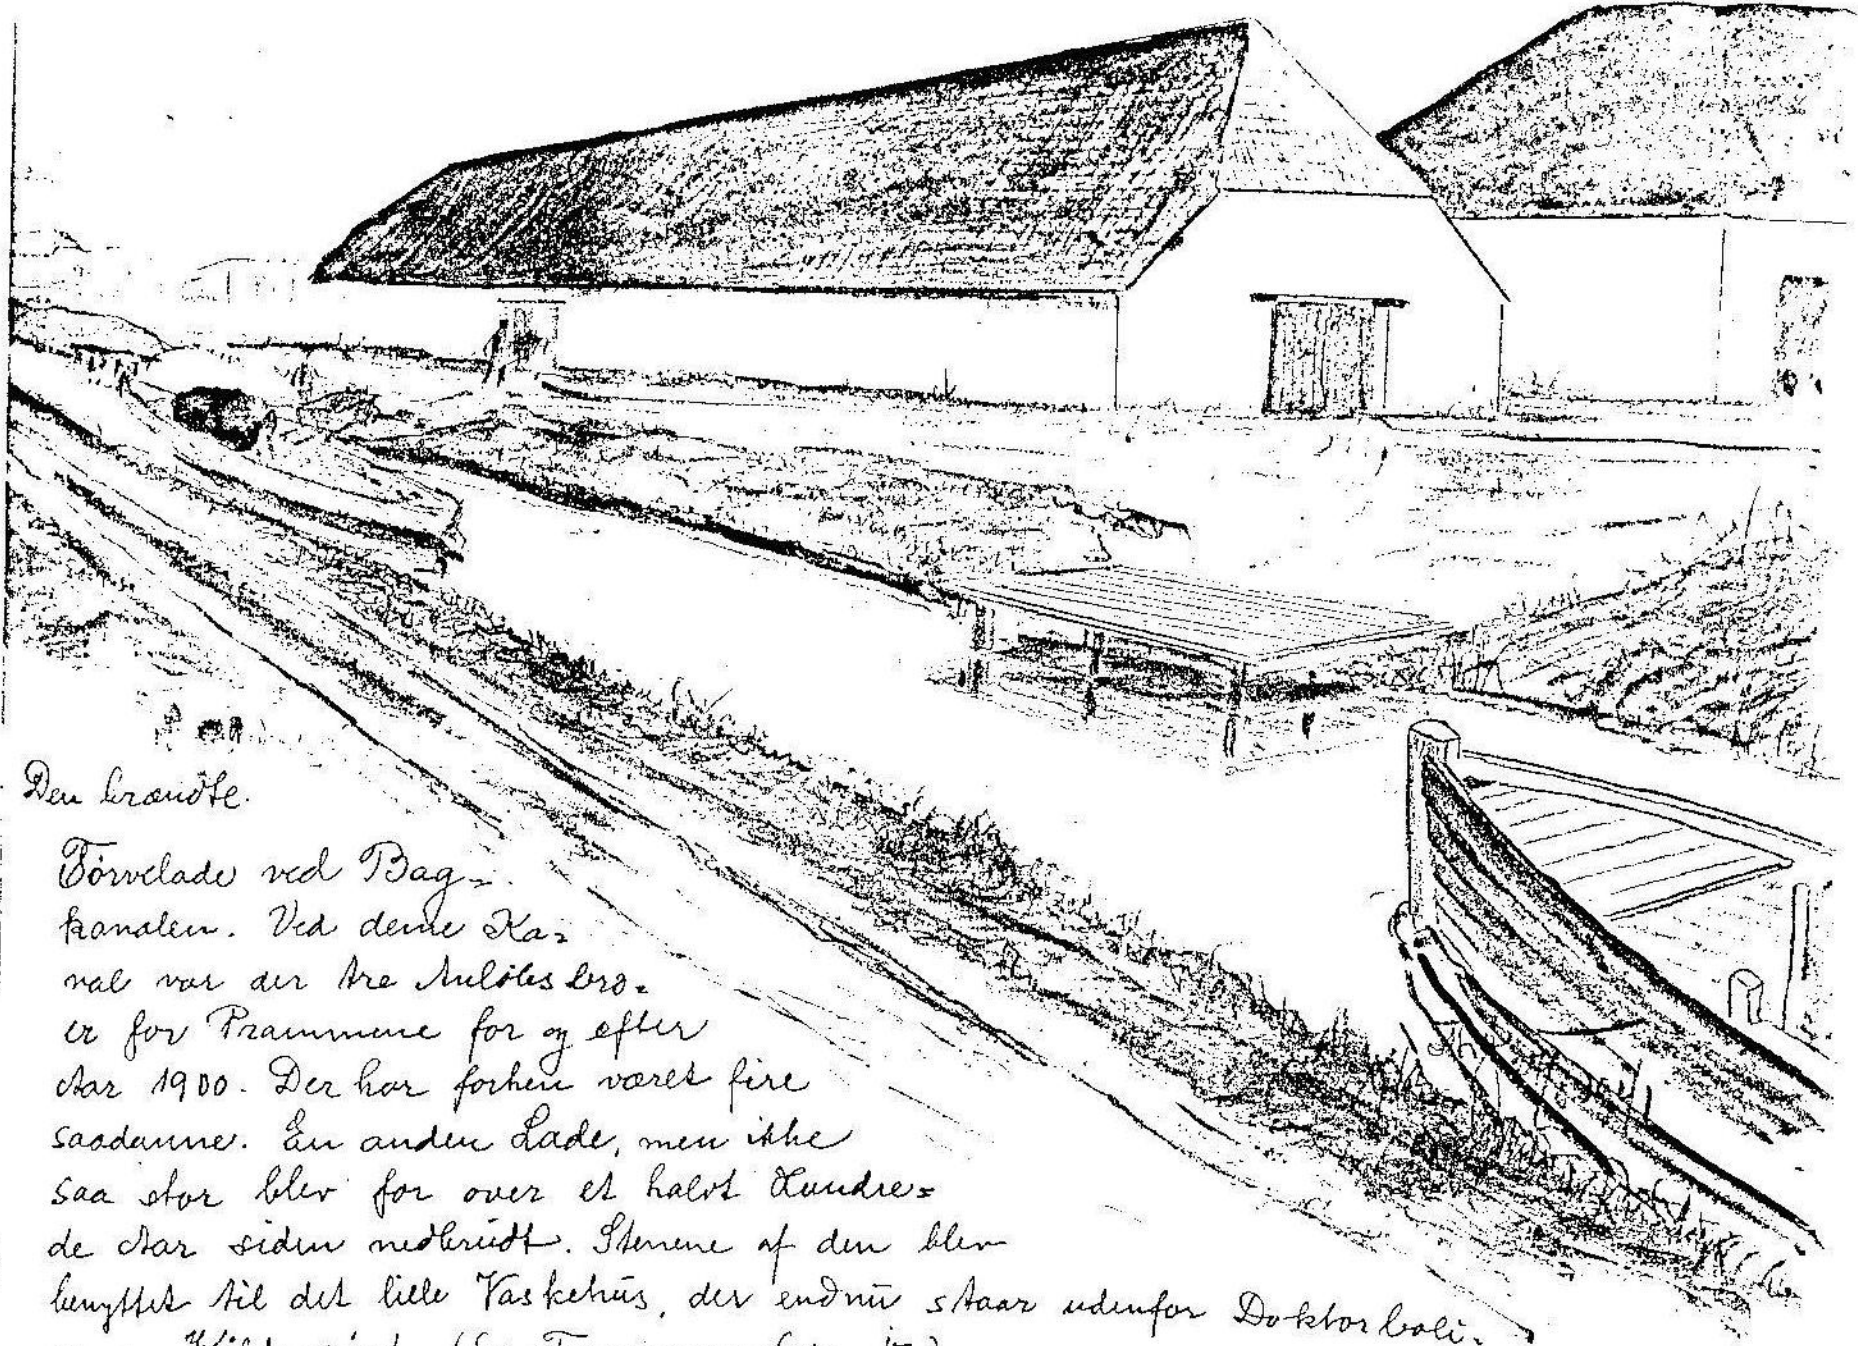 Den brændte.
Tørvelade ved Bag-
kanalen. Ved denne Ka-
nal var der tre Anløbsbro-
er for Prammene for og efter
Aar 1900. Der har forhen været fire
saadanne. En anden Lade, men ikke
saa stor blev for over et halvt Hundre-
de Aar siden nedbrudt. Stenene af den blev
benyttet til det lille Vaskehus, der endnu staar udenfor Doktorboli-